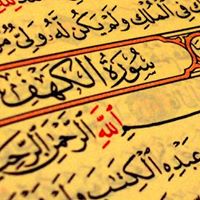 فِي الْمُلْكِ وَلَمْ يَكُن لَّهُ وَلِيٌّ مِّنَ
سُورَةُ الْكَهْفِ
اللَّهِ الرَّحْمَٰنِ الرَّحِيمِ
عَبْدِهِ الْكِتَٰبَ وَلَمْ